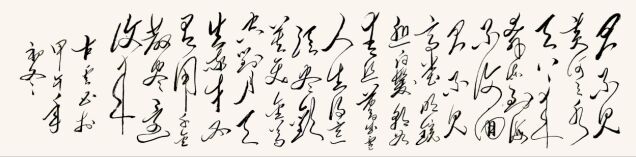 君不见
黄河之水
天上来
奔流到海
不复回
君不见
高堂明镜
悲白发朝如
青丝暮成雪
人生得意
须尽欢
莫使金樽
空对月天
生我材必
有用千金
散尽还
复来
甲午年
初冬